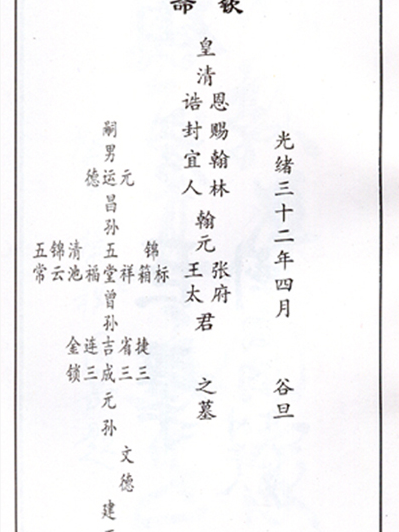 钦命
光绪三十二年四月 谷旦
皇清
恩赐翰林
诰封宜人
翰元
张府
王太
君
之墓
嗣男
德运元
昌
孙
五锦清 五 锦
常云池福堂祥箱标
曾
孙
金连吉省捷
锁三成三三
元
孙
文
德
建